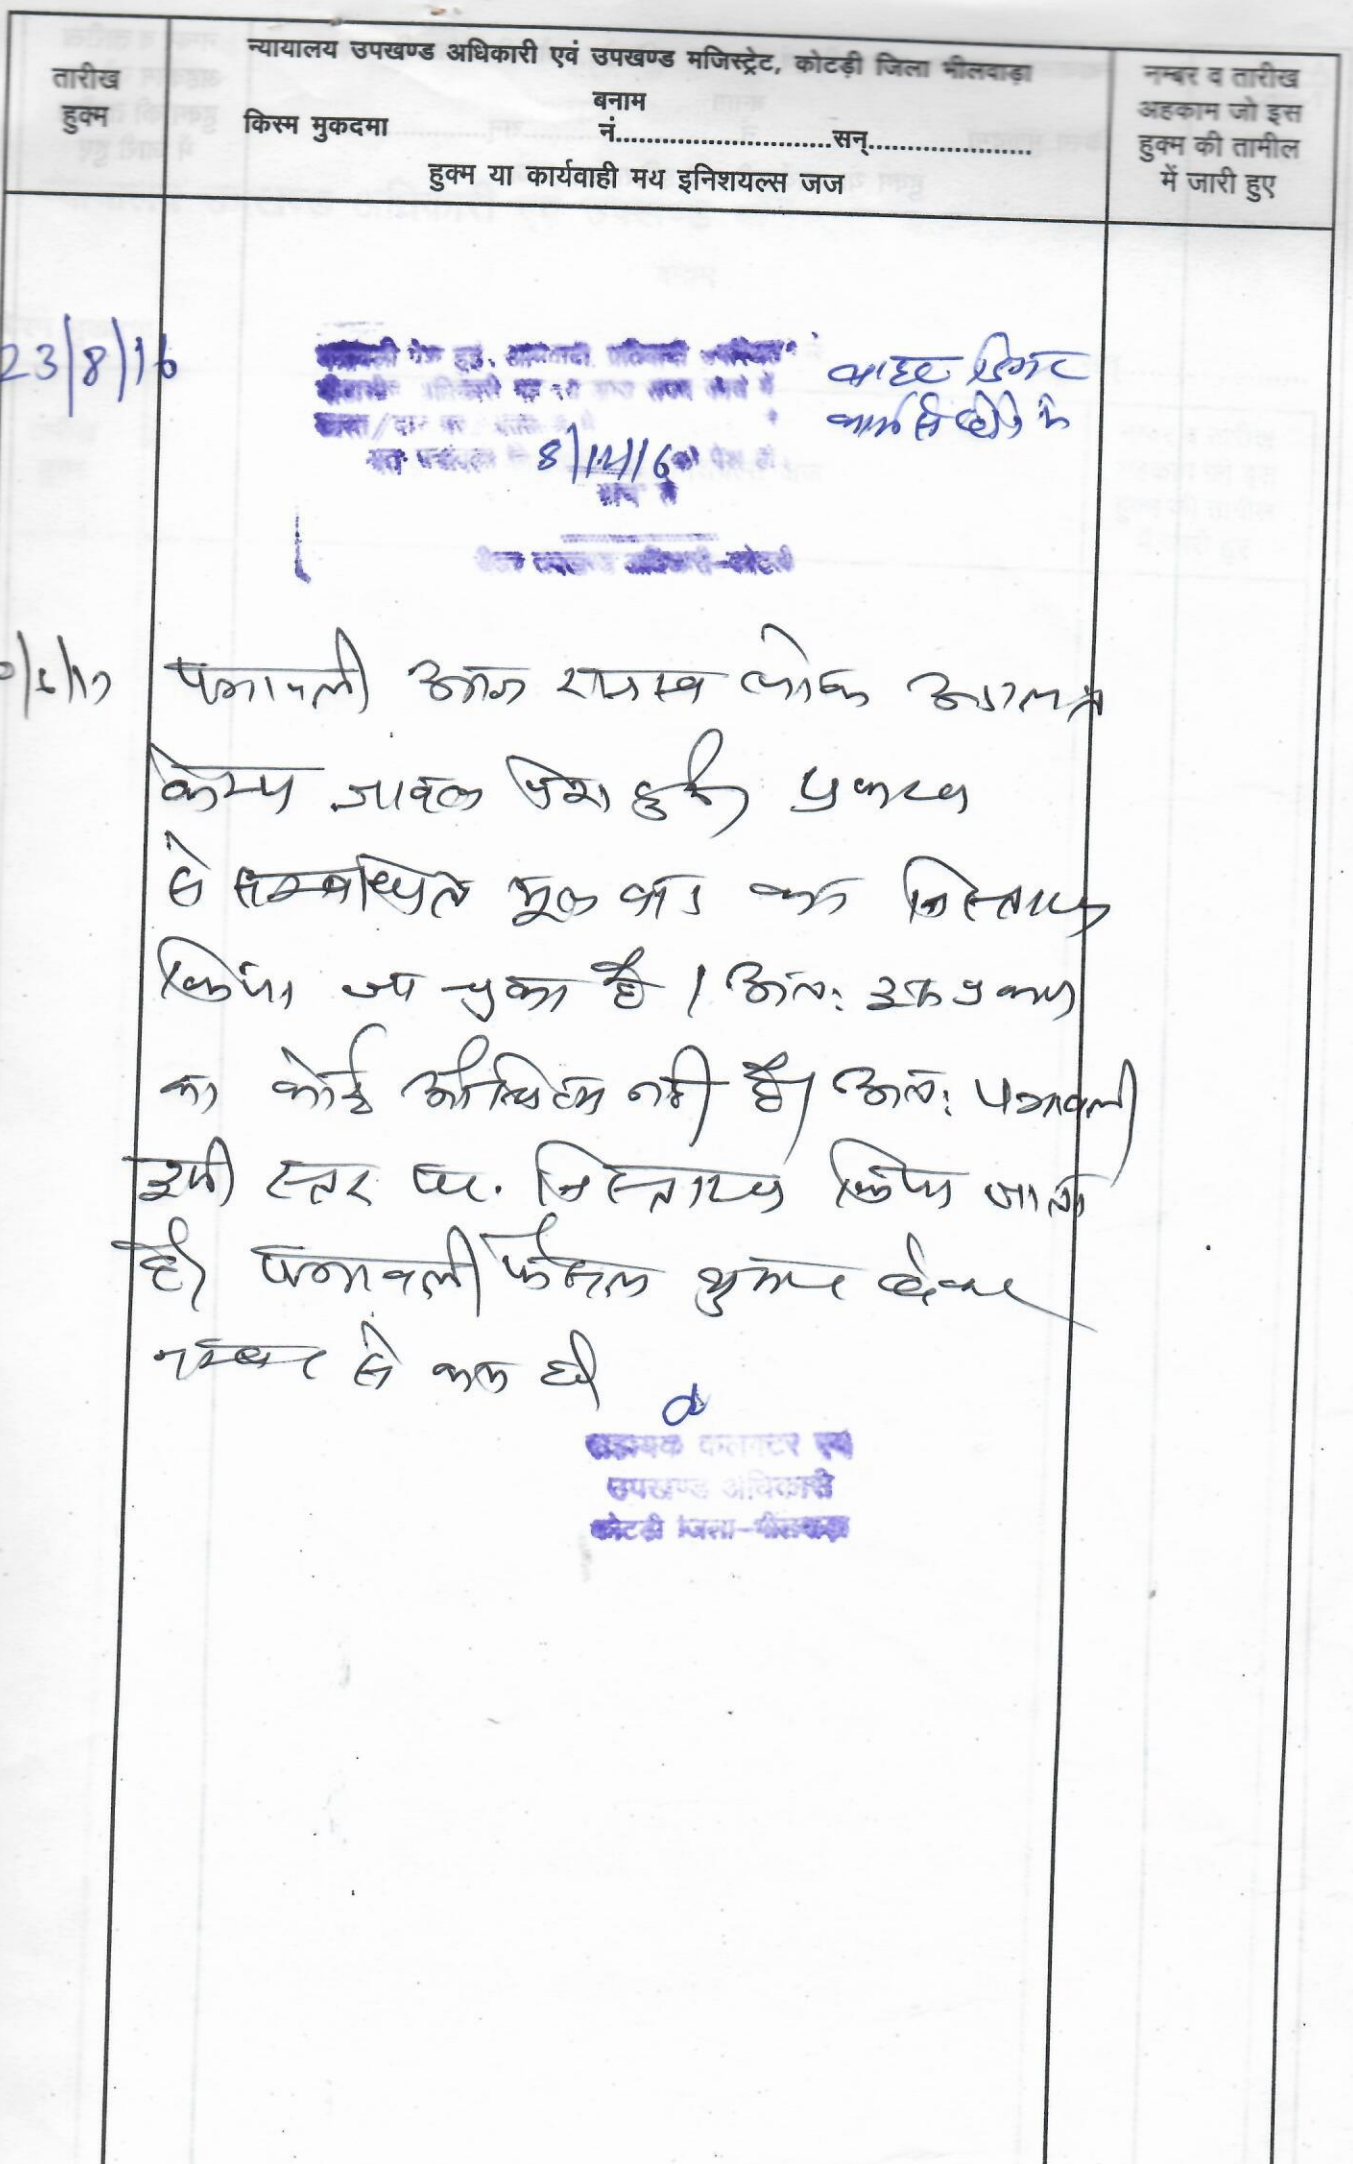 तारीख
हुक्म
न्यायालय उपखण्ड अधिकारी एवं उपखण्ड मजिस्ट्रेट, कोटड़ी जिला भीलवाड़ा
बनाम
किस्म मुकदमा नं............................सन्.....................
हुक्म या कार्यवाही मथ इनिशयल्स जज
नम्बर व तारीख
अहकाम जो इस
हुक्म की तामील
में जारी हुए
23/8/16
पेश हुई, प्रतिवादी उपस्थित
8/12/16 को पेश हो
उपखण्ड अधिकारी-कोटडी
पत्रावली आज राजस्व लोक अदालत
केम्प पेश हुई प्रकरण
से सम्बन्धित मूल वाद का निस्तारण
किया जा चुका है। अतः इस प्रकरण
का कोई औचित्य नही है। अतः पत्रावली
इसी स्तर पर निस्तारण किया जाता
है। पत्रावली फैसल शुमार होकर
नम्बर से कम हो
सहायक कलक्टर एवं
उपखण्ड अधिकारी
कोटडी जिला-भीलवाड़ा